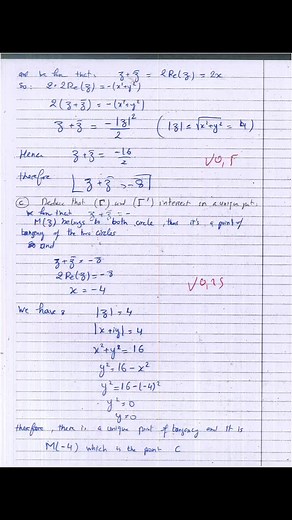 and we have that: z + z̄ = 2Re(z) = 2x
So: 2·2Re(z) = -(x²+y²)
2(z + z̄) = -(x²+y²)
z + z̄ = -|z|²/2 (|z| = √x²+y² = 4)
Hence z + z̄ = -16/2 √0,5
therefore
z + z̄ = -8
c) Deduce that (Γ) and (Γ') intersect in a unique pt.
we have that z + z̄ = -
M(z) belongs to both circle, thus it's a point of
tangency of the two circles
So and
z + z̄ = -8
2Re(z) = -8 √0,25
x = -4
we have: |z| = 4
|x+iy| = 4
x² + y² = 16
y² = 16 - x²
y² = 16 - (-4)²
y² = 0
y = 0
therefore, there is a unique point of tangency and it is
M(-4) which is the point C